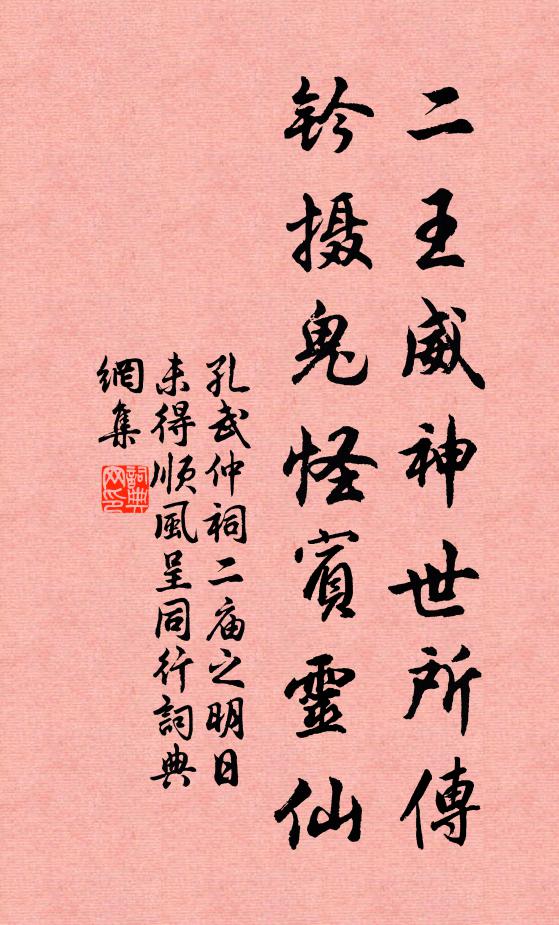 二王威神世所傳
鈐摄鬼怪賓靈仙
孔武仲祠二庙之明日
未得順風呈同行詞典
網集
詞典
网印